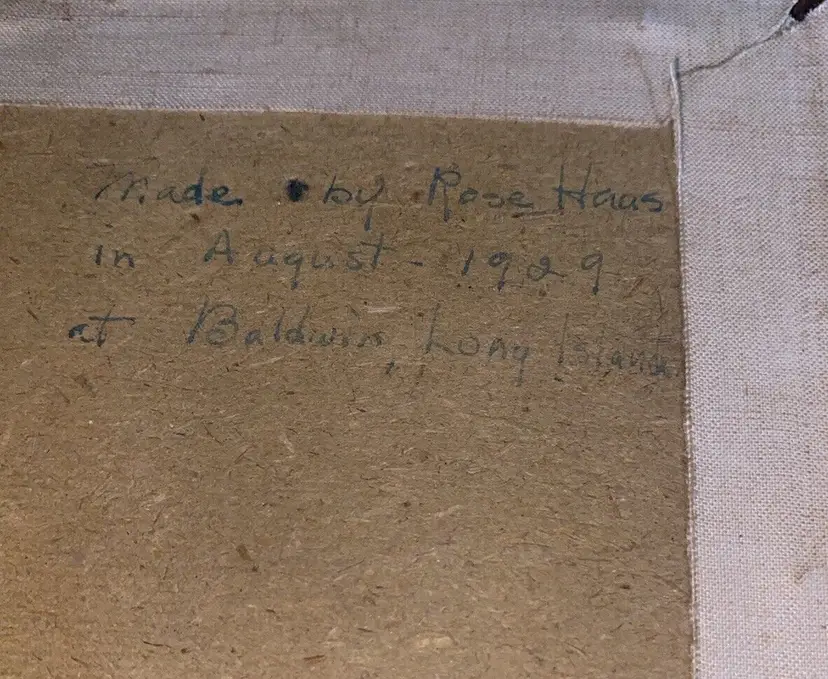 Made by Rose Haas
in August - 1929
at Baldwin, Long Island